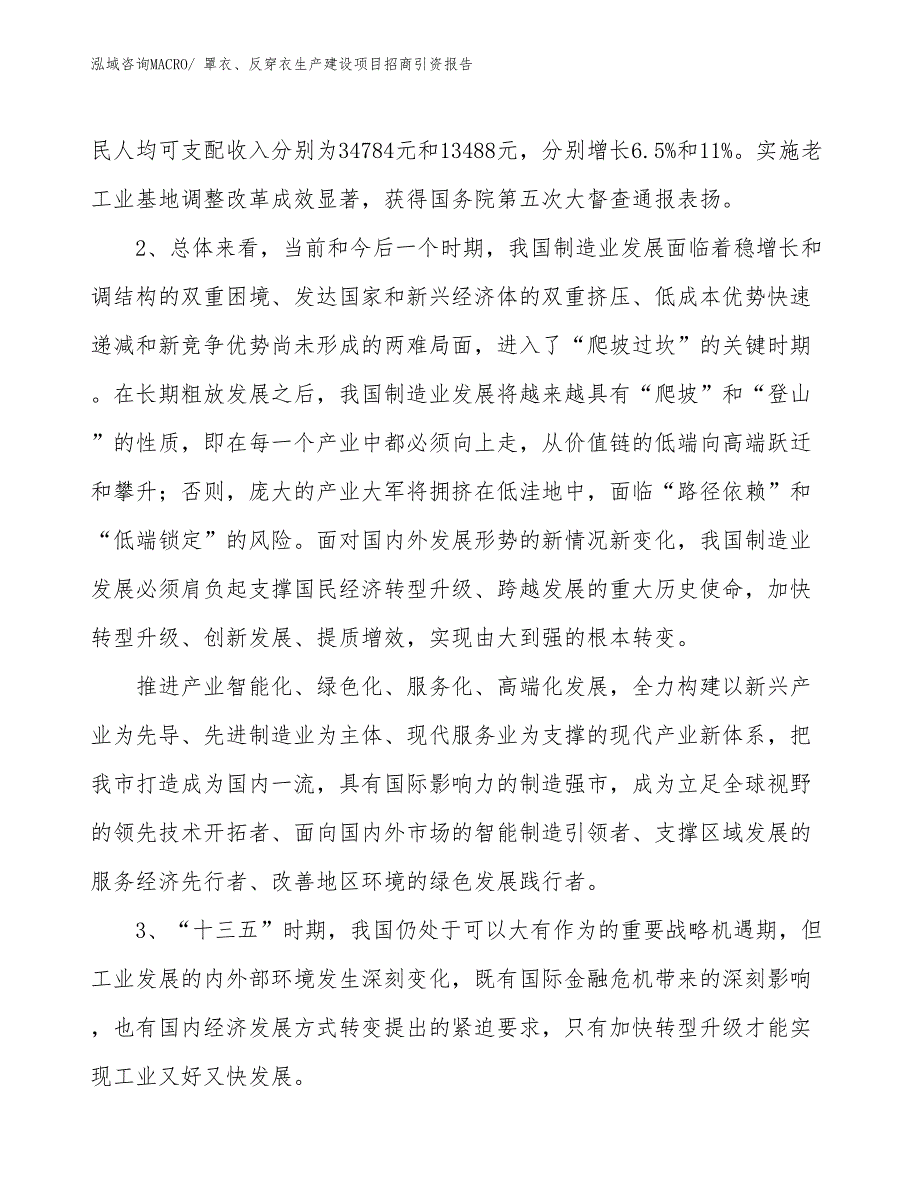 泓域咨询MACRO/ 罩衣、反穿衣生产建设项目招商引资报告
民人均可支配收入分别为34784元和13488元，分别增长6.5%和11%。实施老
工业基地调整改革成效显著，获得国务院第五次大督查通报表扬。
2、总体来看，当前和今后一个时期，我国制造业发展面临着稳增长和
调结构的双重困境、发达国家和新兴经济体的双重挤压、低成本优势快速
递减和新竞争优势尚未形成的两难局面，进入了“爬坡过坎”的关键时期
。在长期粗放发展之后，我国制造业发展将越来越具有“爬坡”和“登山
”的性质，即在每一个产业中都必须向上走，从价值链的低端向高端跃迁
和攀升；否则，庞大的产业大军将拥挤在低洼地中，面临“路径依赖”和
“低端锁定”的风险。面对国内外发展形势的新情况新变化，我国制造业
发展必须肩负起支撑国民经济转型升级、跨越发展的重大历史使命，加快
转型升级、创新发展、提质增效，实现由大到强的根本转变。
推进产业智能化、绿色化、服务化、高端化发展，全力构建以新兴产
业为先导、先进制造业为主体、现代服务业为支撑的现代产业新体系，把
我市打造成为国内一流，具有国际影响力的制造强市，成为立足全球视野
的领先技术开拓者、面向国内外市场的智能制造引领者、支撑区域发展的
服务经济先行者、改善地区环境的绿色发展践行者。
3、“十三五”时期，我国仍处于可以大有作为的重要战略机遇期，但
工业发展的内外部环境发生深刻变化，既有国际金融危机带来的深刻影响
，也有国内经济发展方式转变提出的紧迫要求，只有加快转型升级才能实
现工业又好又快发展。